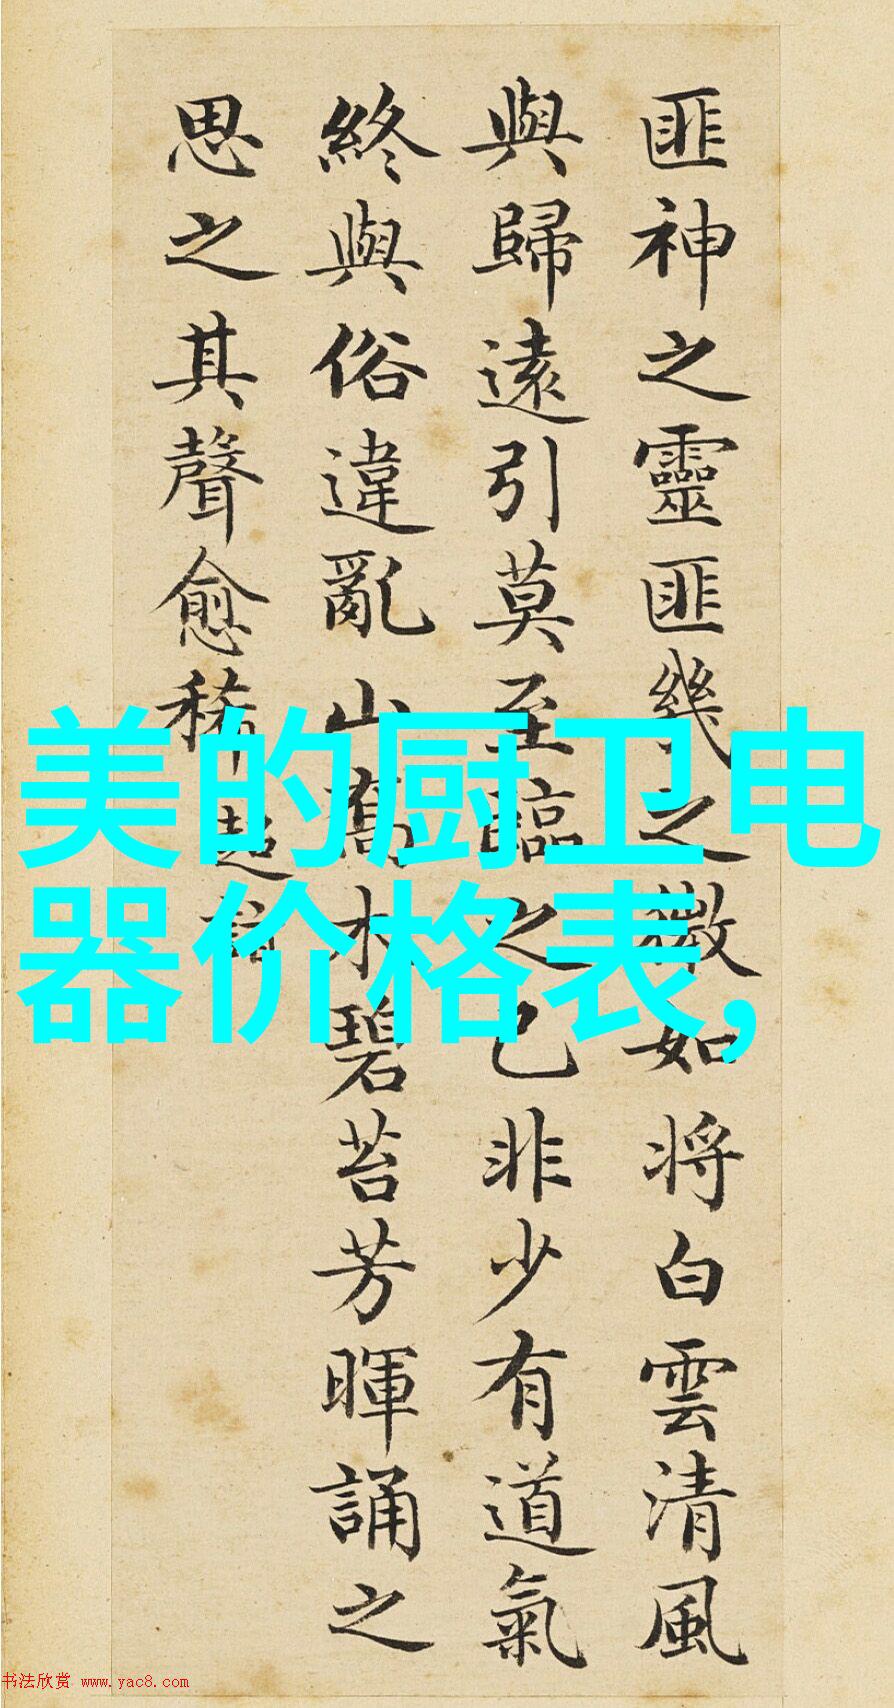 匪神之靈匪幾之微如将白雲清風
與歸遠引莫至臨之已非少有道氣
終與俗違亂山喬木碧苔芳暉誦之
思之其聲愈稀超詣
美的厨卫电
器价格表,
书法欣赏 www.yac8.com